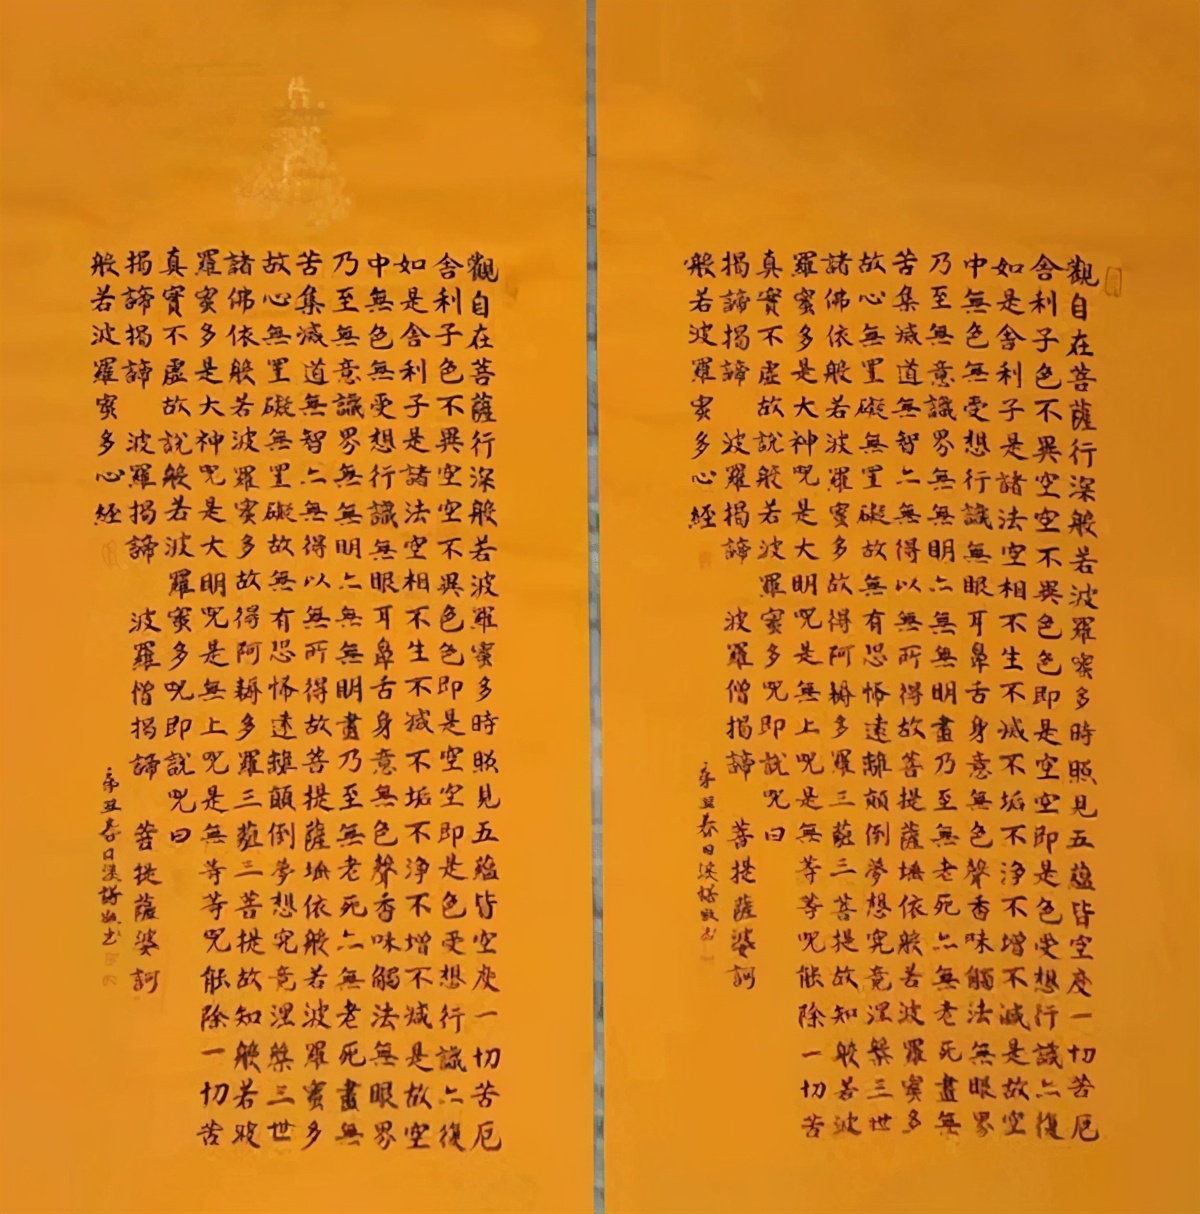 觀自在菩薩行深般若波羅蜜多時照見五蘊皆空度一切苦厄
舍利子色不異空空不異色色即是空空即是色受想行識亦復
如是舍利子是諸法空相不生不滅不垢不淨不增不減是故空
中無色無受想行識無眼耳鼻舌身意無色聲香味觸法無眼界
乃至無意識界無無明亦無無明盡乃至無老死亦無老死盡無
苦集滅道無智亦無得以無所得故菩提薩埵依般若波羅蜜多
故心無罣礙無罣礙故無有恐怖遠離顛倒夢想究竟涅槃三世
諸佛依般若波羅蜜多故得阿耨多羅三藐三菩提故知般若波
羅蜜多是大神咒是大明咒是無上咒是無等等咒能除一切苦
真實不虛故說般若波羅蜜多咒即說咒曰
揭諦揭諦 波羅揭諦 波羅僧揭諦 菩提薩婆訶
般若波羅蜜多心經
辛丑春日敬書
觀自在菩薩行深般若波羅蜜多時照見五蘊皆空度一切苦厄
舍利子色不異空空不異色色即是空空即是色受想行識亦復
如是舍利子是諸法空相不生不滅不垢不淨不增不減是故空
中無色無受想行識無眼耳鼻舌身意無色聲香味觸法無眼界
乃至無意識界無無明亦無無明盡乃至無老死亦無老死盡無
苦集滅道無智亦無得以無所得故菩提薩埵依般若波羅蜜多
故心無罣礙無罣礙故無有恐怖遠離顛倒夢想究竟涅槃三世
諸佛依般若波羅蜜多故得阿耨多羅三藐三菩提故知般若波
羅蜜多是大神咒是大明咒是無上咒是無等等咒能除一切苦
真實不虛故說般若波羅蜜多咒即說咒曰
揭諦揭諦 波羅揭諦 波羅僧揭諦 菩提薩婆訶
般若波羅蜜多心經
辛丑春日敬書